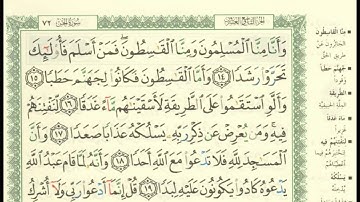 سُورَةُ الجِنِّ ٧٢
وَأَنَّا مِنَّا الْمُسْلِمُونَ وَمِنَّا الْقَاسِطُونَ فَمَنْ أَسْلَمَ فَأُولَٰئِكَ
تَحَرَّوْا رَشَدًا ١٤ وَأَمَّا الْقَاسِطُونَ فَكَانُوا لِجَهَنَّمَ حَطَبًا ١٥
وَأَلَّوِ اسْتَقَامُوا عَلَى الطَّرِيقَةِ لَأَسْقَيْنَاهُم مَّاءً غَدَقًا ١٦ لِنَفْتِنَهُمْ
فِيهِ وَمَن يُعْرِضْ عَن ذِكْرِ رَبِّهِ يَسْلُكْهُ عَذَابًا صَعَدًا ١٧ وَأَنَّ
الْمَسَاجِدَ لِلَّهِ فَلَا تَدْعُوا مَعَ اللَّهِ أَحَدًا ١٨ وَأَنَّهُ لَمَّا قَامَ عَبْدُ اللَّهِ
يَدْعُوهُ كَادُوا يَكُونُونَ عَلَيْهِ لِبَدًا ١٩ قُلْ إِنَّمَا أَدْعُو رَبِّي وَلَا أُشْرِكُ
مِنَّا القَاسِطُونَ
لِجَهَنَّمَ حَطَبًا
الطَّرِيقَةِ
مَاءً غَدَقًا
لِنَفْتِنَهُمْ فِيهِ
يَسْلُكْهُ